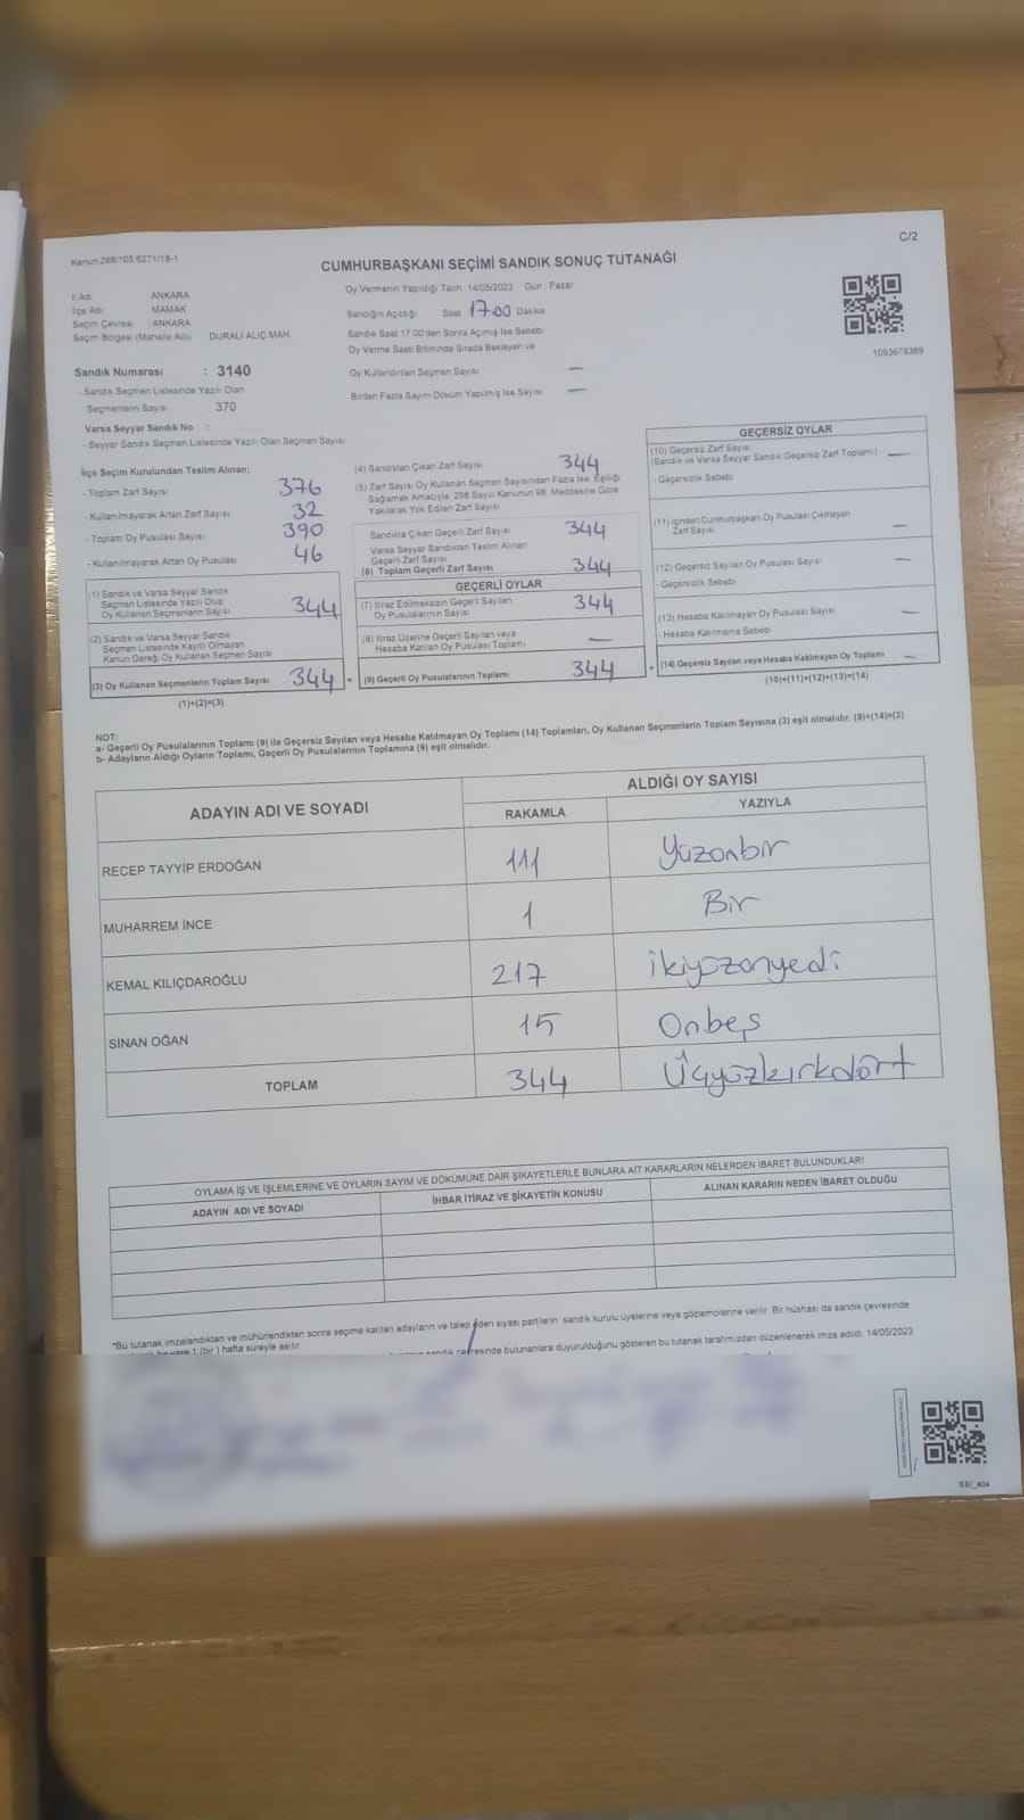 C/2
Kanun:298/103,6271/18-1
CUMHURBAŞKANI SEÇİMİ SANDIK SONUÇ TUTANAĞI
İl Adı ANKARA
İlçe Adı MAMAK
Seçim Çevresi ANKARA
Seçim Bölgesi (Mahalle Adı) DURALİ ALIÇ MAH.
Sandık Numarası : 3140
- Sandık Seçmen Listesinde Yazılı Olan
Seçmenlerin Sayısı 370
Varsa Seyyar Sandık No :
- Seyyar Sandık Seçmen Listesinde Yazılı Olan Seçmen Sayısı
Oy Vermenin Yapıldığı Tarih: 14/05/2023 Gün : Pazar
Sandığın Açıldığı Saat 17:00 Dakika
Sandık Saat 17:00'den Sonra Açılmış İse Sebebi
Oy Verme Saati Bitiminde Sırada Bekleyen ve
Oy Kullandırılan Seçmen Sayısı —
Birden Fazla Sayım Döküm Yapılmış İse Sayısı —
1093678389
İlçe Seçim Kurulundan Teslim Alınan:
- Toplam Zarf Sayısı 376
- Kullanılmayarak Artan Zarf Sayısı 32
- Toplam Oy Pusulası Sayısı 390
- Kullanılmayarak Artan Oy Pusulası 46
(1) Sandık ve Varsa Seyyar Sandık
Seçmen Listesinde Yazılı Olup
Oy Kullanan Seçmenlerin Sayısı 344
(2) Sandık ve Varsa Seyyar Sandık
Seçmen Listesinde Kayıtlı Olmayan
Kanun Gereği Oy Kullanan Seçmen Sayısı
(3) Oy Kullanan Seçmenlerin Toplam Sayısı 344 =
(1)+(2)=(3)
(4) Sandıktan Çıkan Zarf Sayısı 344
(5) Zarf Sayısı Oy Kullanan Seçmen Sayısından Fazla İse, Eşitliği
Sağlamak Amacıyla, 298 Sayılı Kanunun 98. Maddesine Göre
Yakılarak Yok Edilen Zarf Sayısı
Sandıkta Çıkan Geçerli Zarf Sayısı 344
Varsa Seyyar Sandıktan Teslim Alınan
Geçerli Zarf Sayısı
(6) Toplam Geçerli Zarf Sayısı 344
GEÇERLİ OYLAR
(7) İtiraz Edilmeksizin Geçerli Sayılan
Oy Pusulalarının Sayısı 344
(8) İtiraz Üzerine Geçerli Sayılan veya
Hesaba Katılan Oy Pusulası Toplamı —
(9) Geçerli Oy Pusulalarının Toplamı 344 +
GEÇERSİZ OYLAR
(10) Geçersiz Zarf Sayısı
(Sandık ve Varsa Seyyar Sandık Geçersiz Zarf Toplamı) —
- Geçersizlik Sebebi
(11) İçinden Cumhurbaşkanı Oy Pusulası Çıkmayan
Zarf Sayısı —
(12) Geçersiz Sayılan Oy Pusulası Sayısı —
- Geçersizlik Sebebi
(13) Hesaba Katılmayan Oy Pusulası Sayısı —
- Hesaba Katılmama Sebebi
(14) Geçersiz Sayılan veya Hesaba Katılmayan Oy Toplamı —
(10)+(11)+(12)+(13)=(14)
NOT:
a- Geçerli Oy Pusulalarının Toplamı (9) ile Geçersiz Sayılan veya Hesaba Katılmayan Oy Toplamı (14) Toplamları, Oy Kullanan Seçmenlerin Toplam Sayısına (3) eşit olmalıdır. (9)+(14)=(3)
b- Adayların Aldığı Oyların Toplamı, Geçerli Oy Pusulalarının Toplamına (9) eşit olmalıdır.
ADAYIN ADI VE SOYADI ALDIĞI OY SAYISI
RAKAMLA YAZIYLA
RECEP TAYYİP ERDOĞAN 111 Yüzonbir
MUHARREM İNCE 1 Bir
KEMAL KILIÇDAROĞLU 217 ikiyüzonyedi
SİNAN OĞAN 15 Onbeş
TOPLAM 344 Üçyüzkırkdört
OYLAMA İŞ VE İŞLEMLERİNE VE OYLARIN SAYIM VE DÖKÜMÜNE DAİR ŞİKAYETLERLE BUNLARA AİT KARARLARIN NELERDEN İBARET BULUNDUKLARI
ADAYIN ADI VE SOYADI İHBAR İTİRAZ VE ŞİKAYETİN KONUSU ALINAN KARARIN NEDEN İBARET OLDUĞU
*Bu tutanak imzalandıktan ve mühürlendikten sonra seçime katılan adayların ve talep eden siyasi partilerin sandık kurulu üyelerine veya gözlemcilerine verilir. Bir nüshası da sandık çevresinde
1 (bir) hafta süreyle asılır.
çevresinde bulunanlara duyurulduğunu gösteren bu tutanak tarafımızdan düzenlenerek imza edildi. 14/05/2023